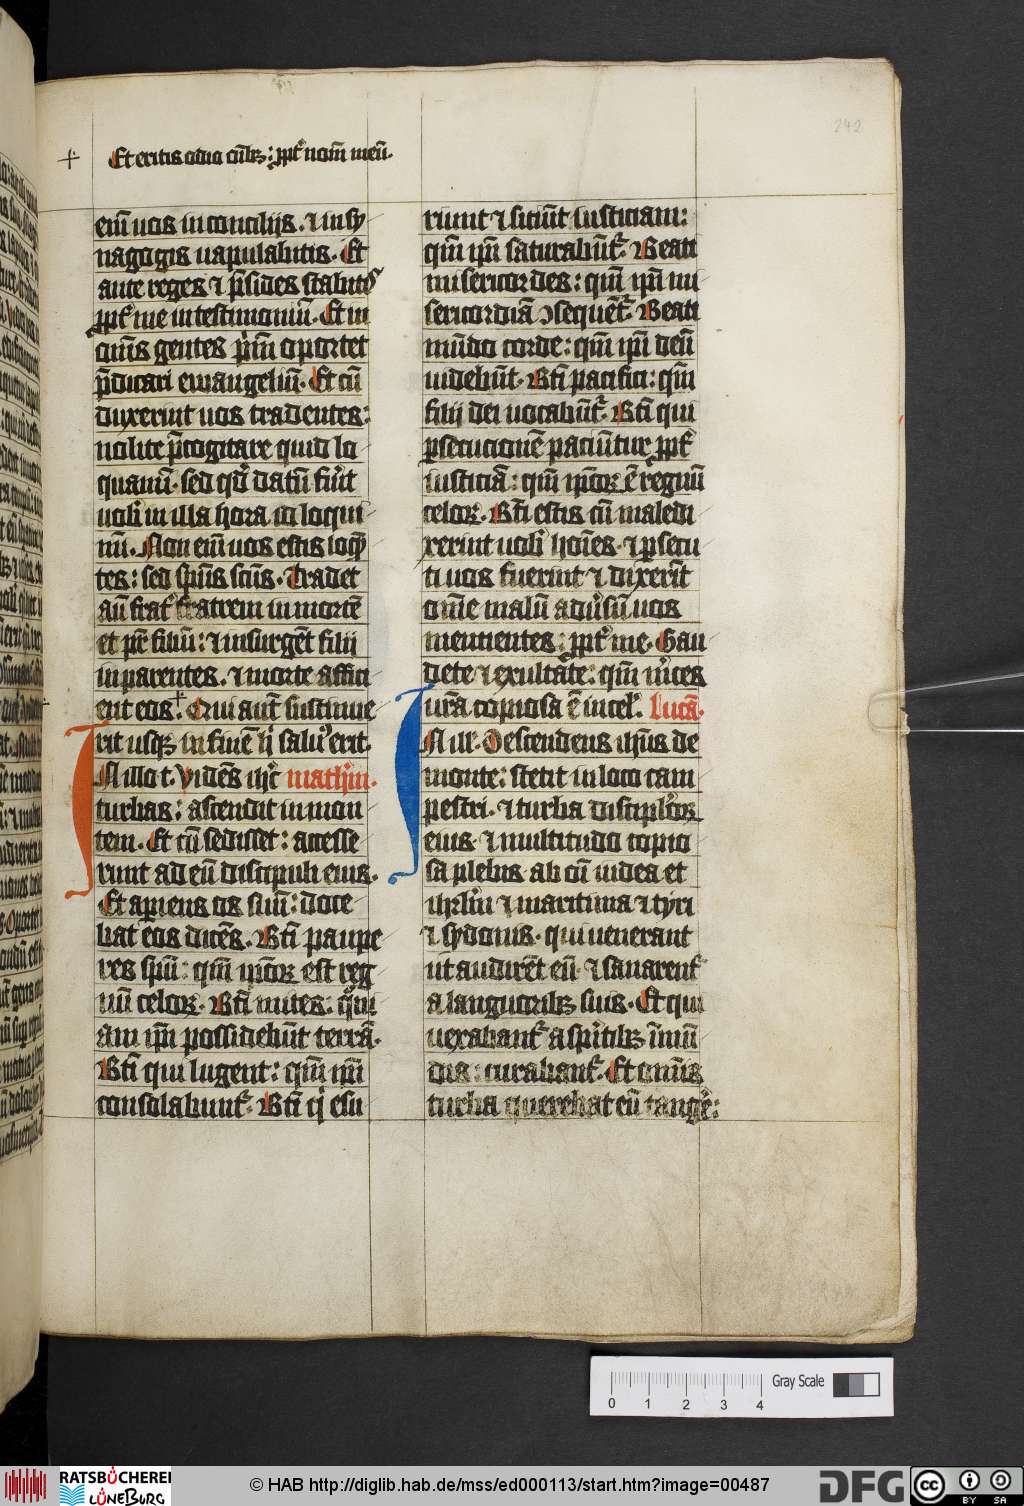 242
+ Et eritis odio om̅ib9: ꝓpt̕ nom̅ meū.
eni̅ uos in concilijs. ⁊ in sy
nagogis uapulabitis. Et
ante reges ⁊ p̅sides stabitꝭ
ꝓpt̕ me in testimoniū. Et in
om̅s gentes p̕mū oportet
p̅dicari ewangeliū. Et cū
duxerint uos tradentes:
nolite p̅cogitare quid lo
quamī. sed qd̕ datū fu̕it
uob̕ in illa hora id loqui
mī. Non eni̅ uos estis loq̅n
tes: sed sp̅us scūs. Tradet
aūt frat̕ fratrem in mortē
et pr̅ filiū: ⁊ insurgēt filij
in parentes. ⁊ morte affici
ent eos.+ Qui aūt sustinue
rit usq̕ in finē hic saluꝰ erit.
IN illo t. Videns ihc̅ math̅m.
turbas: ascendit in mon
tem. Et cū sedisset: accesse
runt ad eū discipuli eius.
Et aperiens os suū: doce
bat eos dicēs. Bt̅i paupe
res spū: qm̅ ip̅oꝝ est reg
nū celoꝝ. Bt̅i mites: qm̅
am ip̅i possidebūt terrā.
Bt̅i qui lugent: qm̅ ip̅i
consolabunt̕. Bt̅i qͥ esu
riunt ⁊ siciūt iusticiam:
qm̅ ip̅i saturabūt̕. Beati
misericordes: qm̅ ip̅i mi
sericordiā ↄsequēt̕. Beati
mūdo corde: qm̅ ip̅i deū
uidebūt. Bt̅i pacifici: qm̅
filij dei uocabūt̕. Bt̅i qui
ꝑsecucionē paciūtur ꝓpt̕
iusticiā: qm̅ ip̅oꝝ ē regnū
celoꝝ. Bt̅i estis cū maledi
xerint uob̕ hoīes. ⁊ ꝑsecu
ti uos fuerint ⁊ dixerīt
om̅e malū aduꝰsū uos
mentientes: ꝓpt̕ me. Gau
dete ⁊ exultate: qm̅ mc̕es
ur̅a copiosa ē in cel̕. Lucā.
IN ill̕. Descendens ih̅us de
monte: stetit in loco cam
pestri. ⁊ turba discipl̕oꝝ
eius. ⁊ multitudo copio
sa plebis. ab om̅i iudea et
ihrl̅m ⁊ maritima ⁊ tyri
⁊ sydonis. qui uenerant
ut audirēt eū. ⁊ sanarent̕
a languorib9 suis. Et qui
uexabant̕ a sp̅itib9 īmū
dis: curabant̕. Et om̅is
turba querebat eū tangē:
0 1 2 3 4 Gray Scale
RATSBÜCHEREI
LÜNEBURG
© HAB http://diglib.hab.de/mss/ed000113/start.htm?image=00487
DFG
cc BY SA